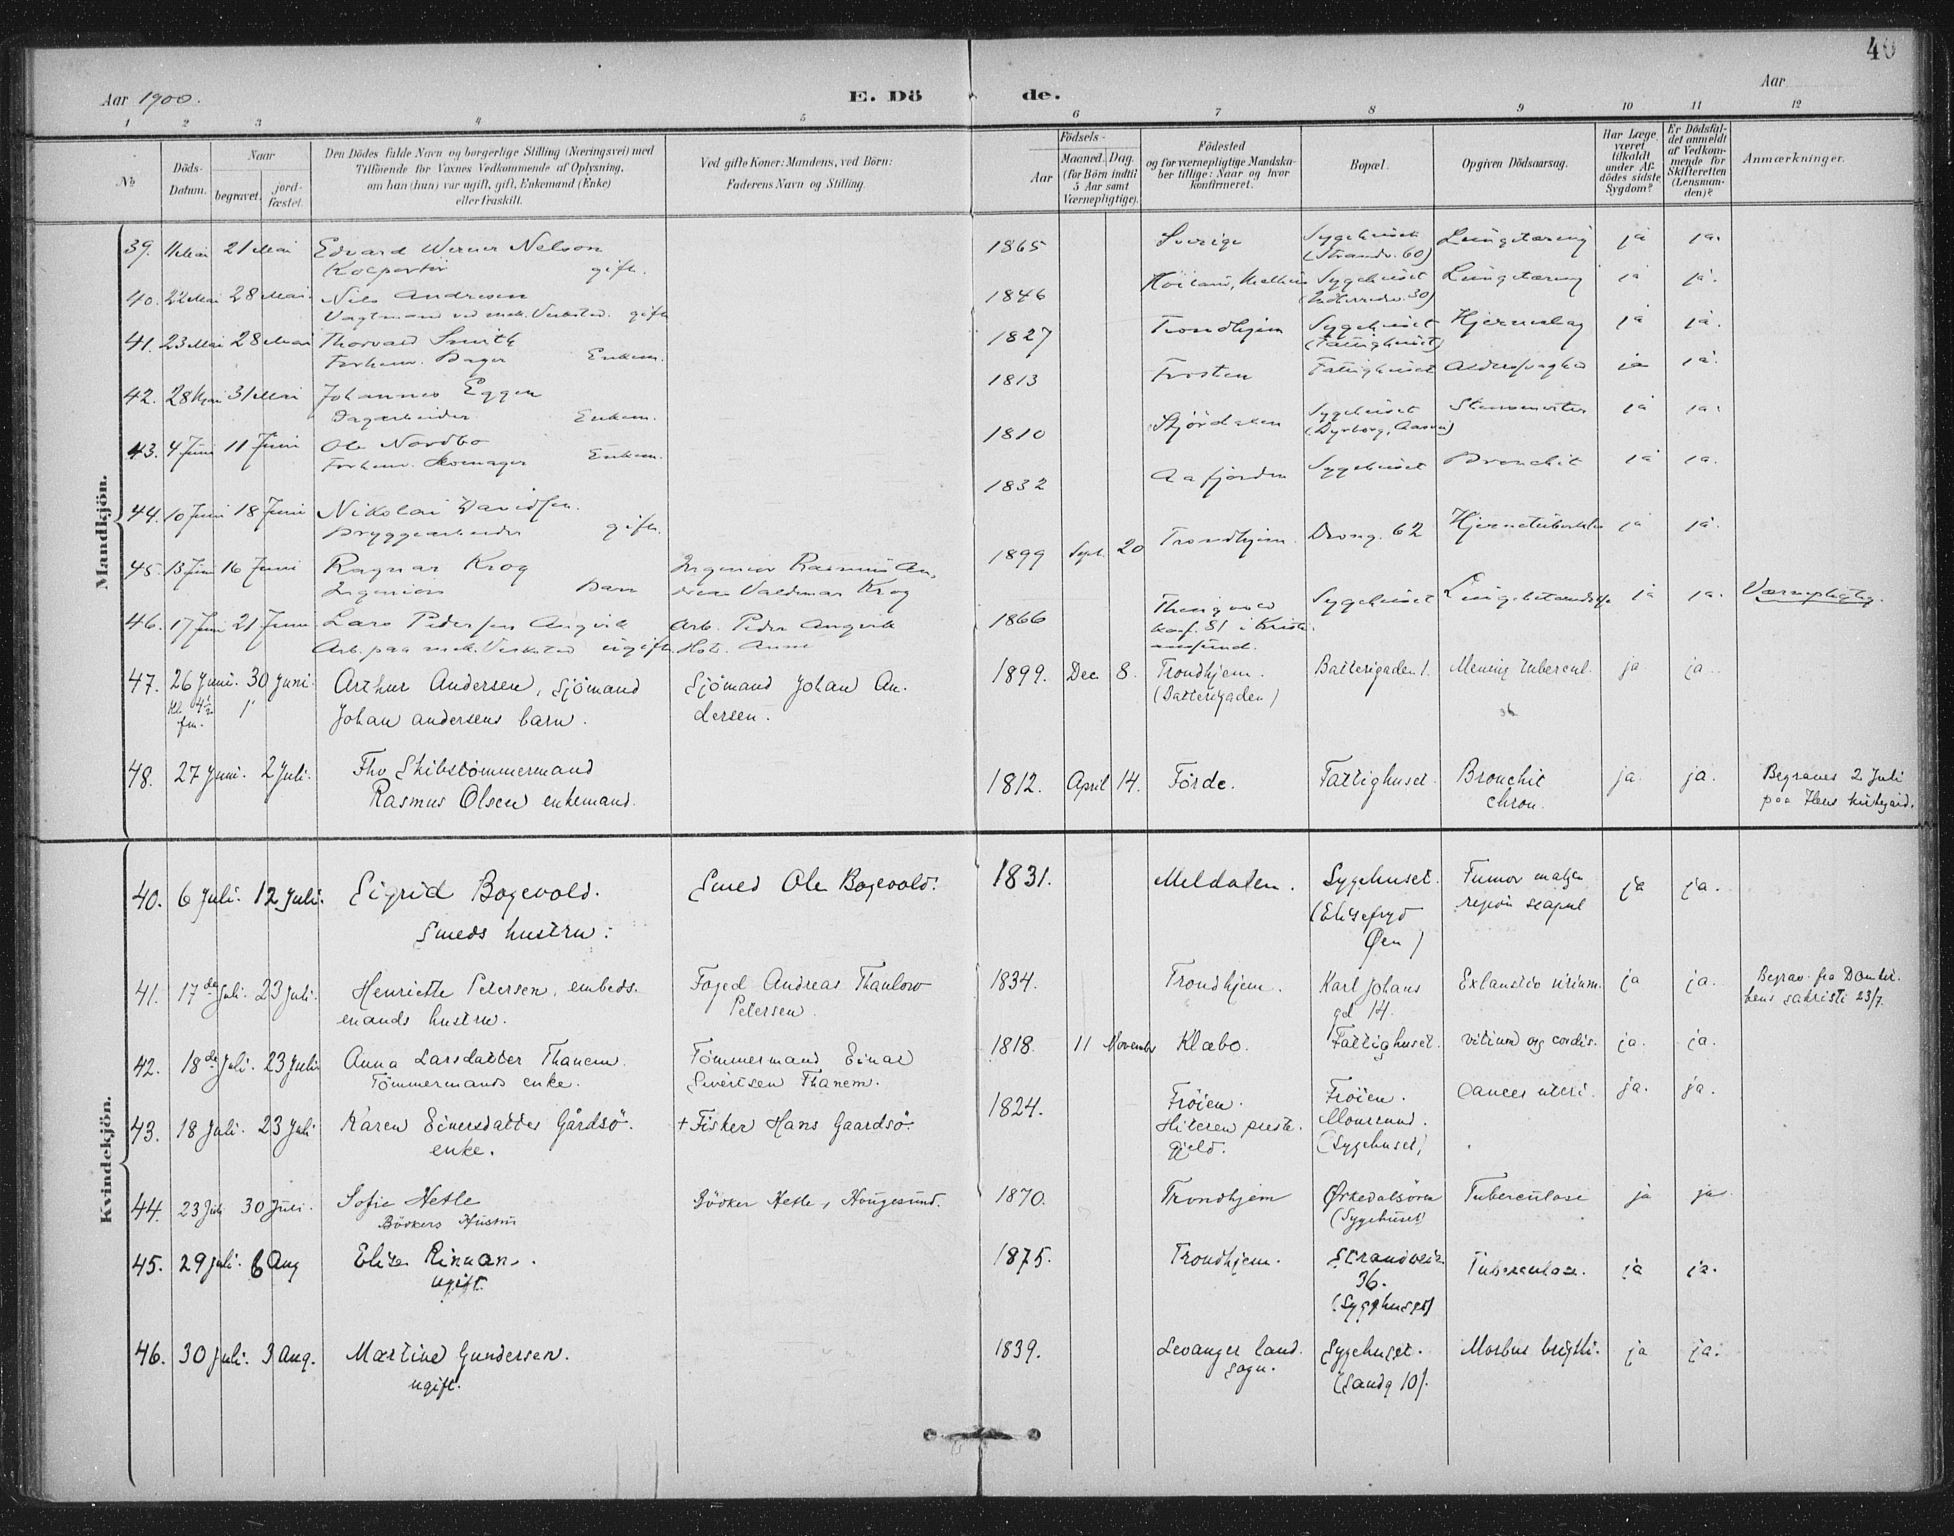 40
Aar 1900. E. Dö de. Aar
1 2 3 4 5 6 7 8 9 10 11 12
No
Döds-Datum.
Naar
begravet.
jord-fæstet.
Den Dödes fulde Navn og borgerlige Stilling (Næringsvei) med
Tilföiende for Voxnes Vedkommende af Oplysning,
om han (hun) var ugift, gift, Enkemand (Enke)
eller fraskilt.
Ved gifte Koner: Mandens, ved Börn:
Faderens Navn og Stilling.
Födsels-
Aar
Maaned. Dag.
(for Börn indtil
5 Aar samt
Værnepligtige).
Födested
og for værnepligtige Mandska-
ber tillige: Naar og hvor
konfirmeret.
Bopæl.
Opgiven Dödsaarsag.
Har Læge
været
tilkaldt
under Af-
dödes sidste
Sygdom?
Er Dödsfal-
det anmeldt
af Vedkom-
mende for
Skifteretten
(Lensman-
den)?
Anmærkninger.
Mandkjön.
39. Mai 21 Mai Edvard Werner Nelson 1865 Sverige Sygehuset Lungetæring ja ja.
Kolportör gift. (Strandv. 60)
40. 22 Mai 28 Mai Nils Andresen 1846 Höiland, Sygehuset Lungetæring ja ja.
Vagtmand ved mek. Verksted. gift 30)
41. 23 Mai 28 Mai Thorvald Smith 1827 Trondhjem Sygehuset Hjerneslag ja ja.
Forhenv. Bager Enkem. (Fattighuset)
42. 28 Mai 31 Mai Johannes Eggen 1813 Frosten Fattighuset Alderssvaghed ja ja.
Dagarbeider Enkem.
43. 4 Juni 11 Juni Ole Nordbo 1810 Stjördalen Sygehuset ja ja.
Forhenv. Skomager Enkem. (Dyrborg, Aasen)
44. 10 Juni 18 Juni Nikolai Davidsen. 1832 Aafjorden Sygehuset Bronchit ja ja.
Bryggearbeider gift.
45. 13 Juni 16 Juni Ragnar Krog Ingeniör Rasmus An- 1899 Sept. 20 Trondhjem. Drong. 62 ja ja.
Ingeniörs Barn dreas Valdemar Krog
46. 17 Juni 21 Juni Lars Pedersen Angvik Arb. Peder Angvik 1866 Thingvold Sygehuset Lungebetændelse ja ja. Værnepligtig.
Arb. paa mek. Verksted ugift konf. 81 i Kristi-
ansund.
47. 26 Juni. 30 Juni. Arthur Andersen, Sjömand Sjömand Johan An- 1899. Dec 8. Trondhjem. Batterigaden 1. Mening tubercul. ja ja.
Kl. 4½ fm. Johan Andersens barn. dersen. (Batterigaden)
48. 27 Juni. 2 Juli. Fhv Skibstömmermand 1812. April 14. Förde. Fattighuset. Bronchit ja. ja. Begraves 2 Juli
Rasmus Olsen enkemand. chron. paa Ilens kirkegaard.
Kvindekjön.
40. 6 Juli. 12 Juli. Sigrid Bogevold. Smed Ole Bogevold. 1831. Meldalen. Sygehuset. Tumor malign ja ja.
Smeds hustru. (Elisefryd region scapul
Øen)
41. 17de Juli. 23 Juli. Henriette Petersen, embeds- Foged Andreas Thaulow 1834. Trondhjem. Karl Johans Exhaustio virium. ja ja. Begrav. fra Domkir-
mands hustru. Petersen. gd 14. kens sakristi 23/7.
42. 18de Juli. 23 Juli Anna Larsdatter Thanem. Tömmermand Einar 1818. 11 November Klæbo. Fattighuset. vitium og cordis. ja. ja.
Tömmermands enke. Sivertsen Thanem.
43. 18 Juli. 23 Juli Karen Einersdatter Gårdsö. + Fisker Hans Gaardsö. 1824. Fröien. Fröien. Cancer uteri. ja. ja.
enke. Hiteren preste- Mousund.
gjeld. (Sygehuset)
44. 23 Juli 30 Juli. Sofie Hetle Bödker Hetle, Hougesund. 1870. Trondhjem Ørkedalsören Tuberculose ja ja
Bödkers Hustru (Sygehuset)
45. 29 Juli. 6 Aug Elise Rinnan. 1875. Trondhjem. Strandveien Tuberculose. ja ja.
ugift. 36.
(Sygehuset)
46. 30 Juli. 3 Aug. Martine Gundersen. 1839. Levanger land- Sygehuset. Morbus brigtii. ja ja.
ugift. sogn. (Sandg 10).